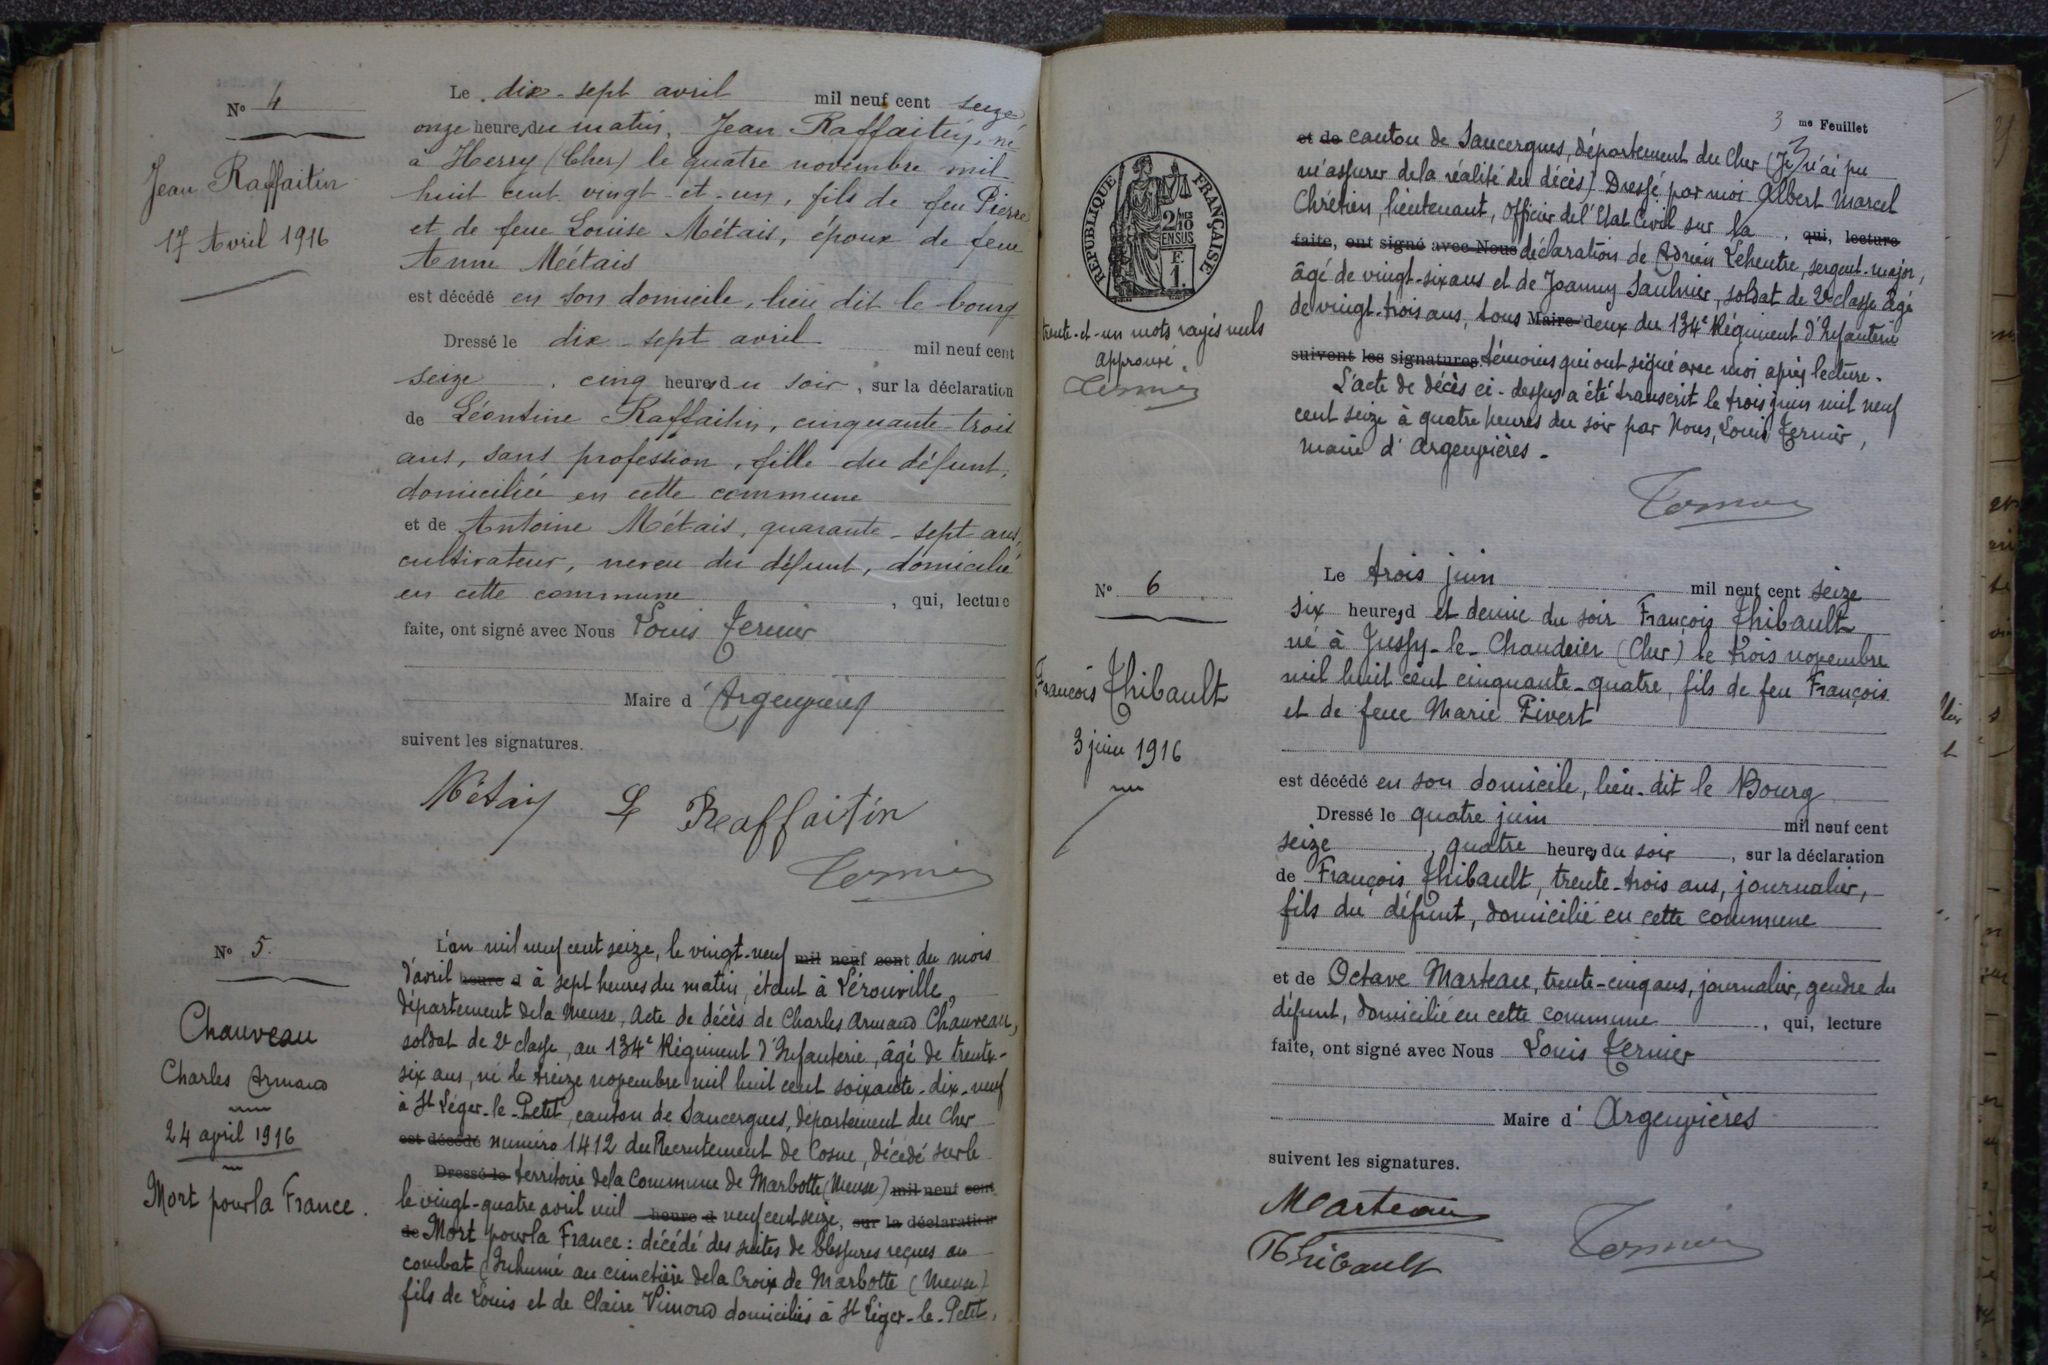 N° 4
Jean Raffaitin
17 Avril 1916
Le dix-sept avril mil neuf cent seize
onze heures du matin, Jean Raffaitin, né
à Herry (Cher) le quatre novembre mil
huit cent vingt-et-un, fils de feu Pierre
et de feue Louise Métais, époux de feue
Anne Méétais
est décédé en son domicile, lieu dit le bourg
Dressé le dix-sept avril mil neuf cent
seize, cinq heures du soir, sur la déclaration
de Léontine Raffaitin, cinquante-trois
ans, sans profession, fille du défunt,
domiciliée en cette commune
et de Antoine Métais, quarante-sept ans,
cultivateur, neveu du défunt, domicilié
en cette commune, qui, lecture
faite, ont signé avec Nous Louis Ternier
Maire d'Argenvières
suivent les signatures.
Métais L Raffaitin
Ternier
N° 5.
Chauveau
Charles Armand
24 april 1916
Mort pour la France.
L'an mil neuf cent seize, le vingt-neuf mil neuf cent du mois
d'avril heure d à sept heures du matin, étant à Lérouville,
département de la Meuse, Acte de décès de Charles Armand Chauveau,
soldat de 2e classe, au 134e Régiment d'Infanterie, âgé de trente-
six ans, né le treize novembre mil huit cent soixante-dix-neuf
à St Léger-le-Petit, canton de Sancergues, département du Cher
est décédé numéro 1412 du Recrutement de Cosne, décédé sur le
Dressé le territoire de la Commune de Marbotte (Meuse) mil neuf cent
le vingt-quatre avril mil heure d neuf cent seize, sur la déclaration
de Mort pour la France: décédé des suites de blessures reçues au
combat (Inhumé au cimetière de la Croix de Marbotte (Meuse)
fils de Louis et de Claire Vimond domiciliés à St Léger-le-Petit,
3 me Feuillet
3
et de canton de Sancergues, département du Cher (Je n'ai pu
m'assurer de la réalité du décès) Dressé par moi Albert Marcel
Chrétien, lieutenant, Officier de l'Etat Civil sur la, qui, lecture
faite, ont signé avec Nous déclaration de Adrien Leheutre, sergent-major,
âgé de vingt-six ans et de Joanny Saulnier, soldat de 2e classe âgé
de vingt-trois ans, tous Maire deux du 134e Régiment d'Infanterie
suivent les signatures. témoins qui ont signé avec moi après lecture.
L'acte de décès ci-dessus a été transcrit le trois juin mil neuf
cent seize à quatre heures du soir par Nous, Louis Ternier,
maire d'Argenvières.
Ternier
REPUBLIQUE FRANÇAISE
2 MES
10
EN SUS
F.
1.
trente-et-un mots rayés nuls
approuvé
Ternier
N° 6
François Thibault
3 juin 1916
Le trois juin mil neuf cent seize
six heures d et demie du soir François Thibault
né à Jussy-le-Chaudrier (Cher) le trois novembre
mil huit cent cinquante-quatre, fils de feu François
et de feue Marie Pivert
est décédé en son domicile, lieu-dit le Bourg
Dressé le quatre juin mil neuf cent
seize, quatre heures du soir, sur la déclaration
de François Thibault, trente-trois ans, journalier,
fils du défunt, domicilié en cette commune
et de Octave Marteau, trente-cinq ans, journalier, gendre du
défunt, domicilié en cette commune, qui, lecture
faite, ont signé avec Nous Louis Ternier
Maire d'Argenvières
suivent les signatures.
Marteau
Thibault
Ternier